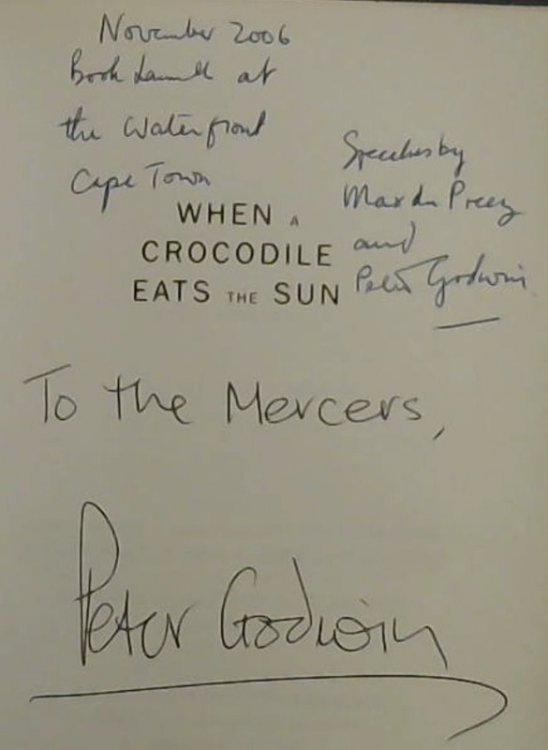 November 2006
Book Launch at
the Waterfront
Cape Town
Speeches by
Max du Preez
and
Peter Godwin
WHEN A
CROCODILE
EATS THE SUN
To the Mercers,
Peter Godwin